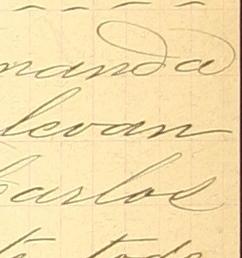 manda
levan
Carlos
te todo